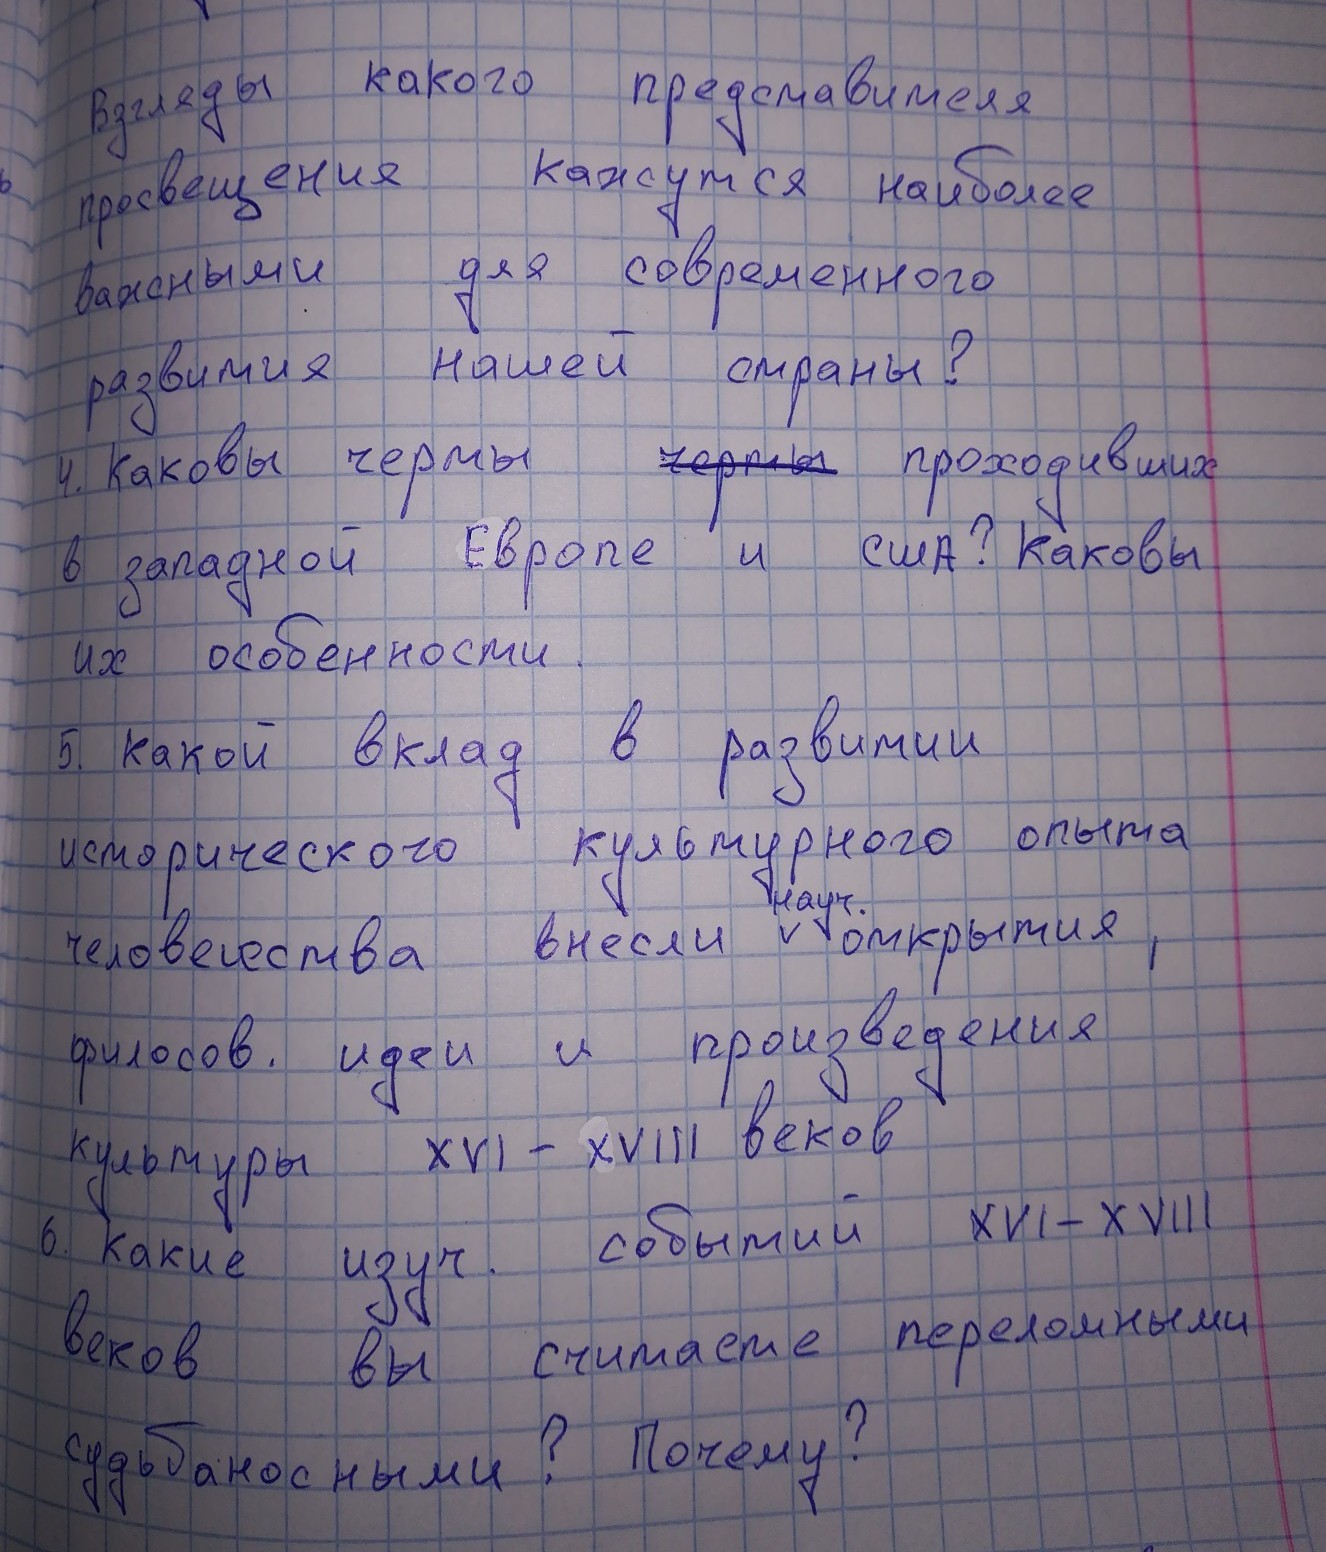 Взгляды какого представителя
просвещения кажутся наиболее
важными для современного
развития нашей страны?
4. Каковы черты черты проходивших
в западной Европе и США? Каковы
их особенности.
5. Какой вклад в развитии
исторического культурного опыта
науч.
человечества внесли v открытия,
филосов. идеи и произведения
культуры XVI - XVIII веков
6. Какие изуч. событий XVI - XVIII
веков вы считаете переломными
судьбаносными? Почему?